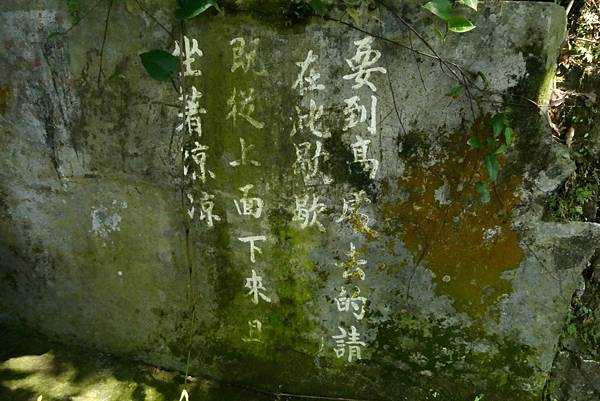 要到高處去的請
在此歇歇
既從上面下來且
坐着涼涼